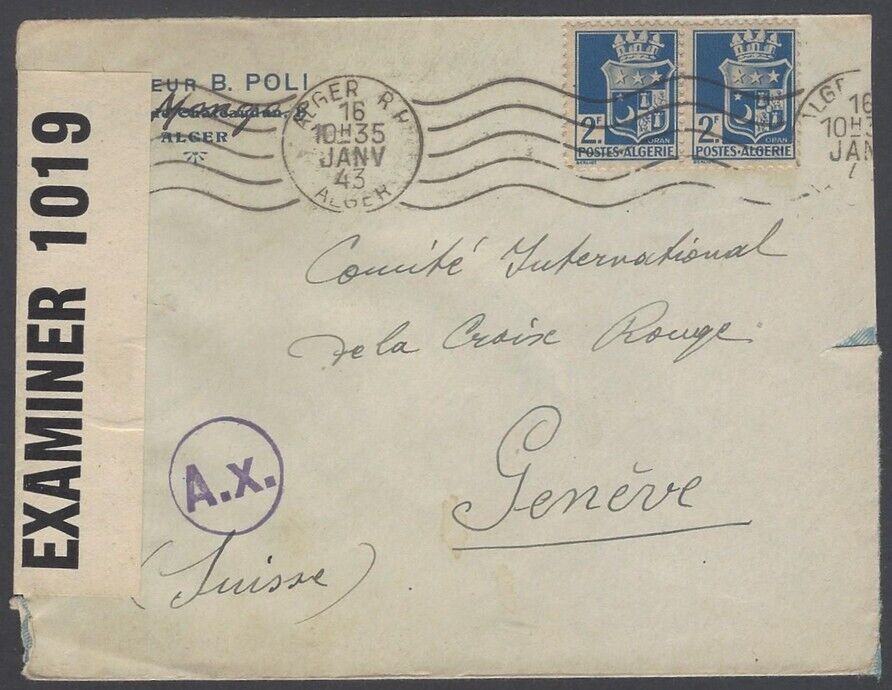 EXAMINER 1019
EUR B. POLI
ALGER
ALGER R.
16
10H35
JANV
43
ALGER
2F
ORAN
POSTES-ALGERIE
2F
ORAN
POSTES-ALGERIE
ALGE
16
10H3
JAN
Comité International
de la Croix Rouge
Genève
A.x.
(Suisse)